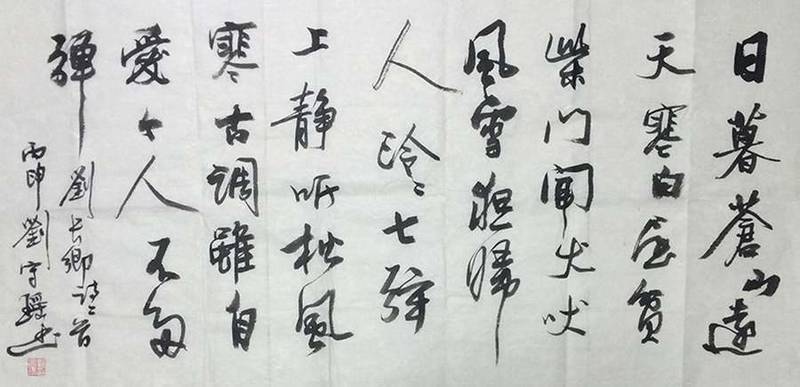 日暮蒼山遠
天寒白屋貧
柴門聞犬吠
風雪夜歸
人泠泠七弦
上静听松風
寒古調雖自
愛今人不多
彈
劉長卿詩二首
丙申劉宇书